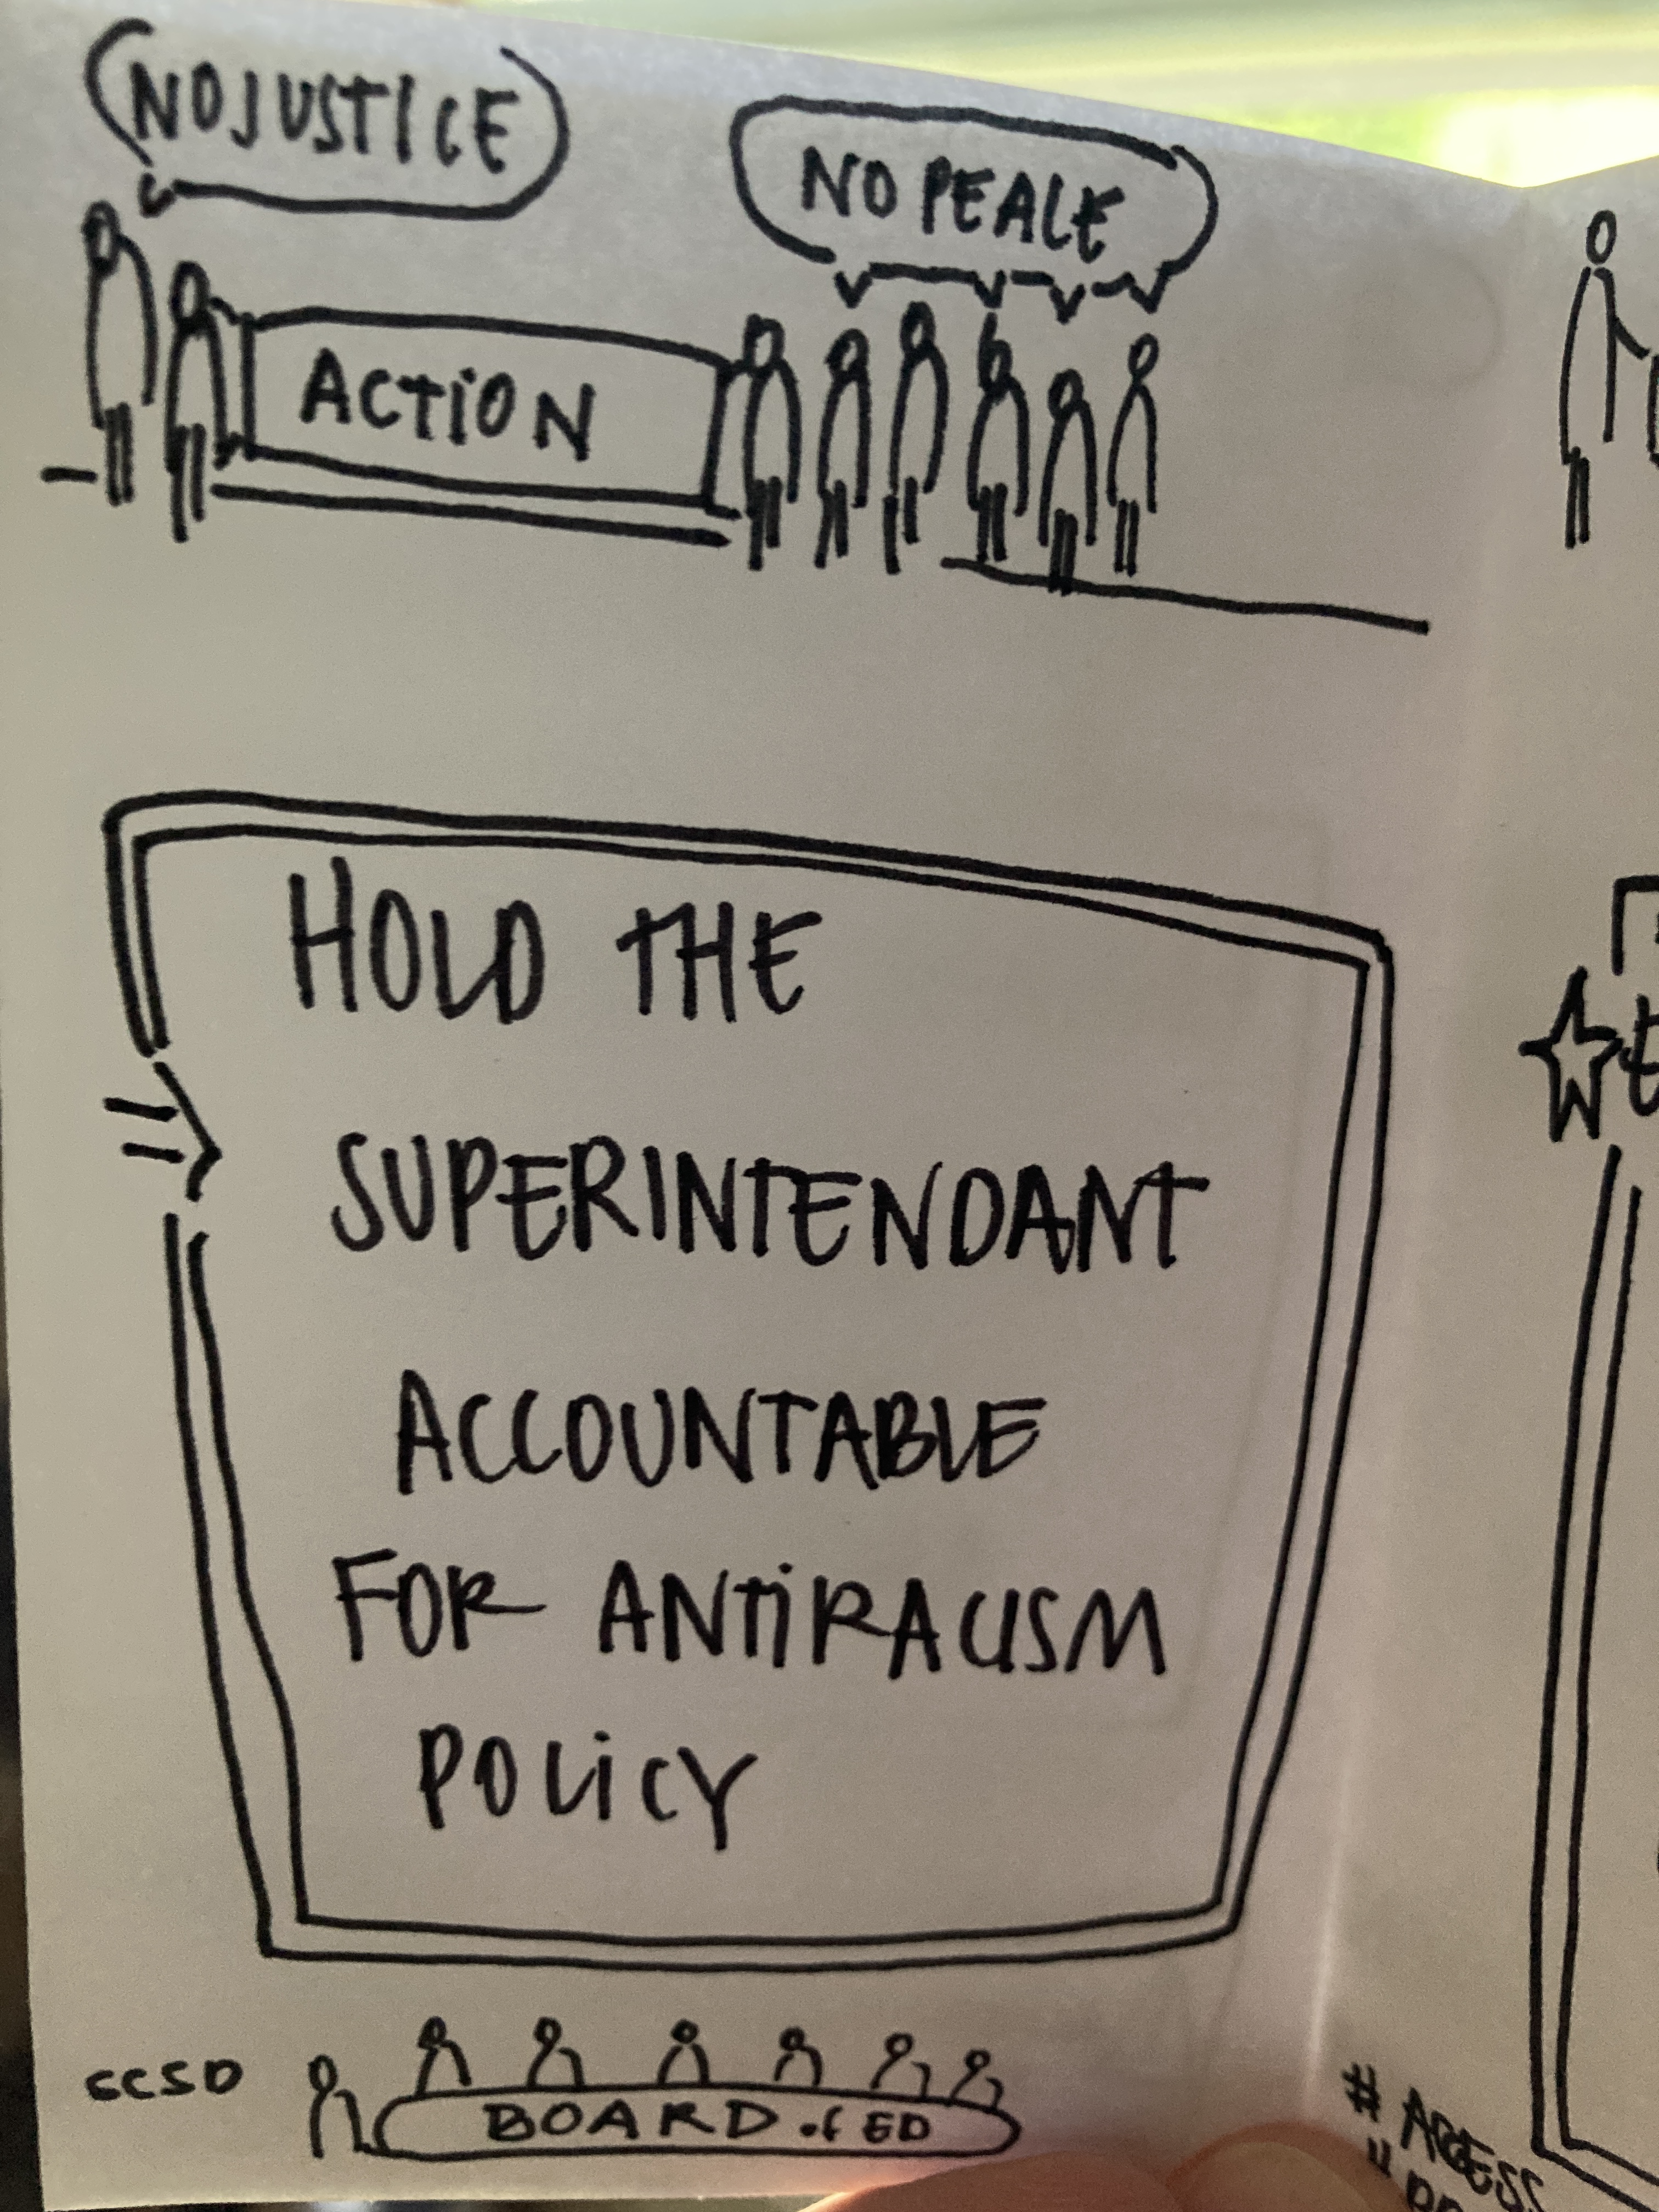 NO JUSTICE
NO PEACE
ACTION
HOLD THE
SUPERINTENDANT
ACCOUNTABLE
FOR ANTIRACISM
POLICY
CCSD
BOARD of ED
# ACCESS